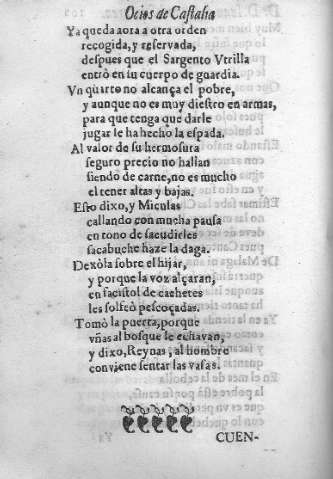 Ocios de Castalia
Ya queda aora a otra orden
recogida, y reservada,
despues que el Sargento Vtrilla
entrò en su cuerpo de guardia.
Vn quarto no alcança el pobre,
y aunque no es muy diestro en armas,
para que tenga que darle
jugar le ha hecho la espada.
Al valor de su hermosura
seguro precio no hallan
siendo de carne, no es mucho
el tener altas y bajas.
Esto dixo, y Miculas
callando con mucha pausa
en tono de sacudirles
sacabuche haze la daga.
Dexòla sobre el hijar,
y porque la voz alçaran,
en facistol de cachetes
les solfeò pescoçadas.
Tomò la puerta, porque
vñas al bosque le estavan,
y dixo, Reynas, al hombre
conviene sentar las vasas.
CUEN-